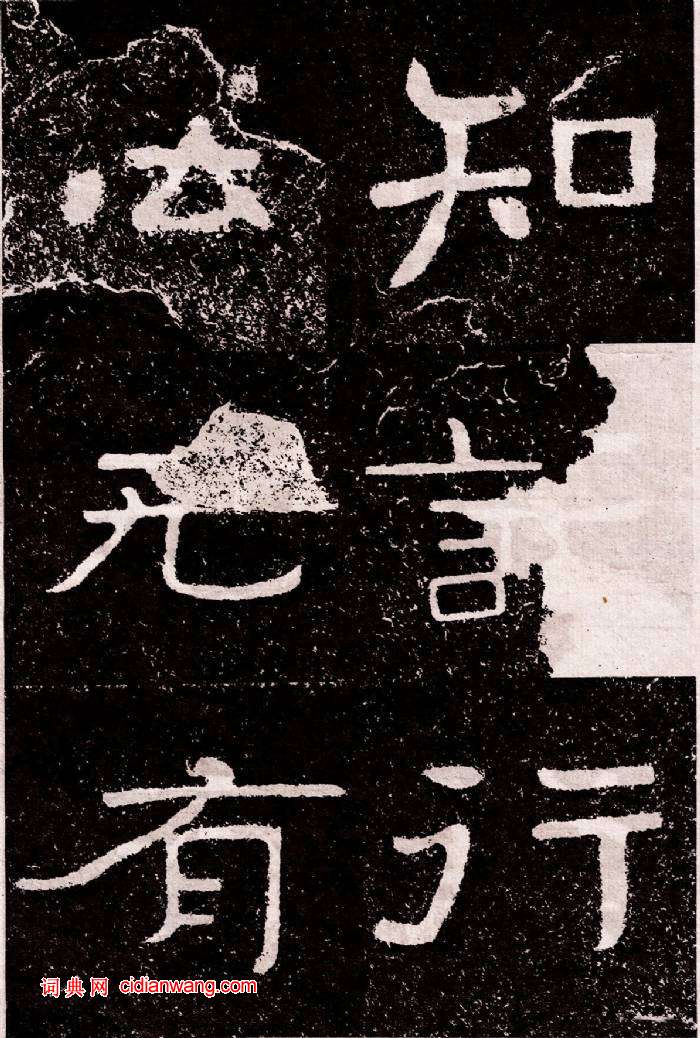 知行
法无有
词典网 cidianwang.com